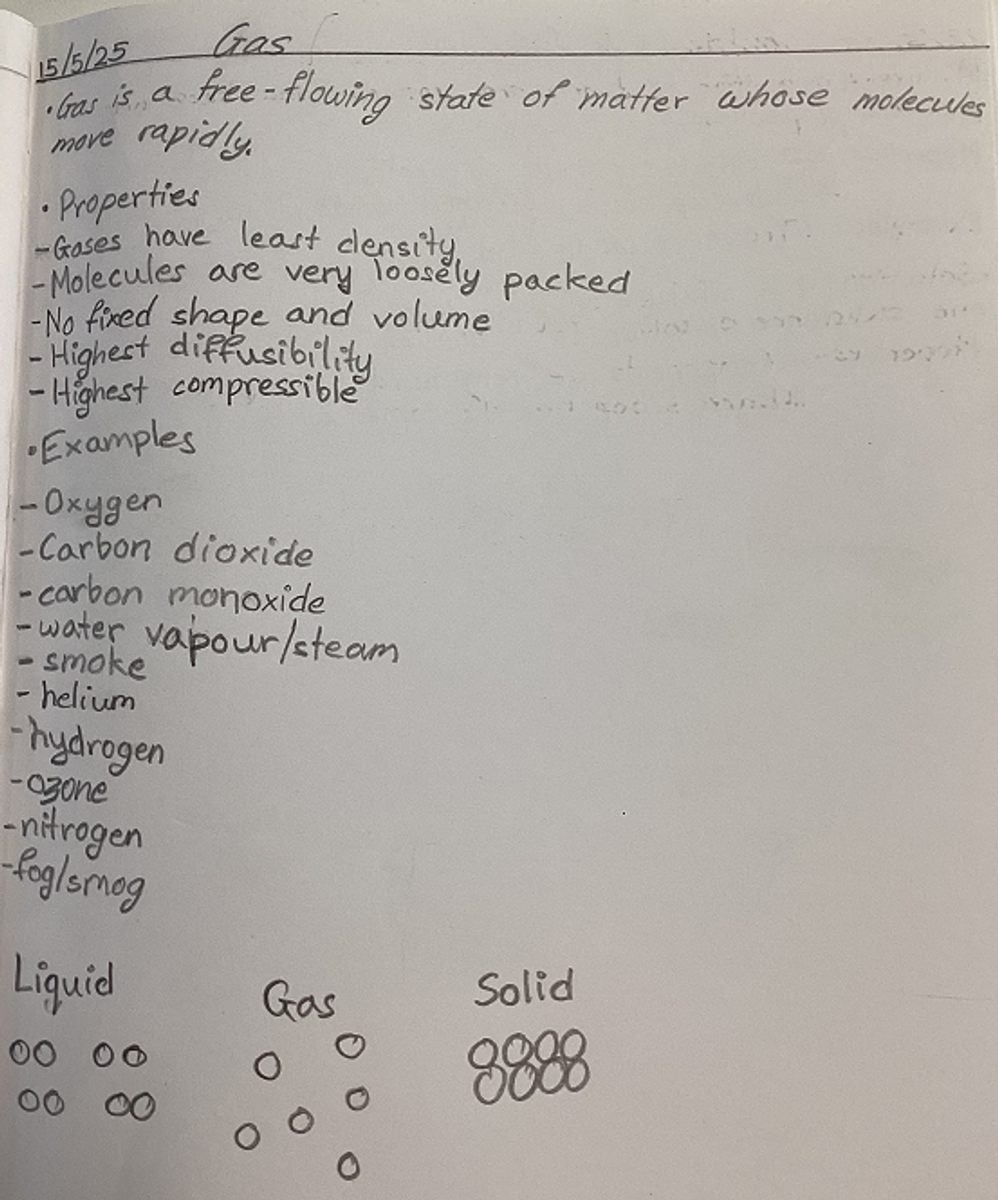 15/5/25 Gas
•Gas is a free-flowing state of matter whose molecules
move rapidly.
• Properties
-Gases have least density
-Molecules are very loosely packed
-No fixed shape and volume
- Highest diffusibility
- Highest compressible
•Examples
-Oxygen
-Carbon dioxide
-carbon monoxide
-water vapour/steam
- smoke
- helium
-hydrogen
-ozone
-nitrogen
-fog/smog
Liquid Gas Solid